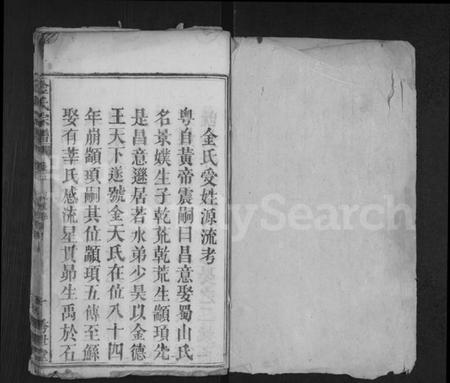 金氏受姓源流考
粤自黃帝震嗣曰昌意娶蜀山氏
名景媄生子乾荒乾荒生顓頊先
是昌意遜居若水弟少昊以金德
王天下遂號金天氏在位八十四
年崩顓頊嗣其位顓頊五傳至鯀
娶有莘氏感流星貫昴生禹於石
金氏宗譜
MySearch